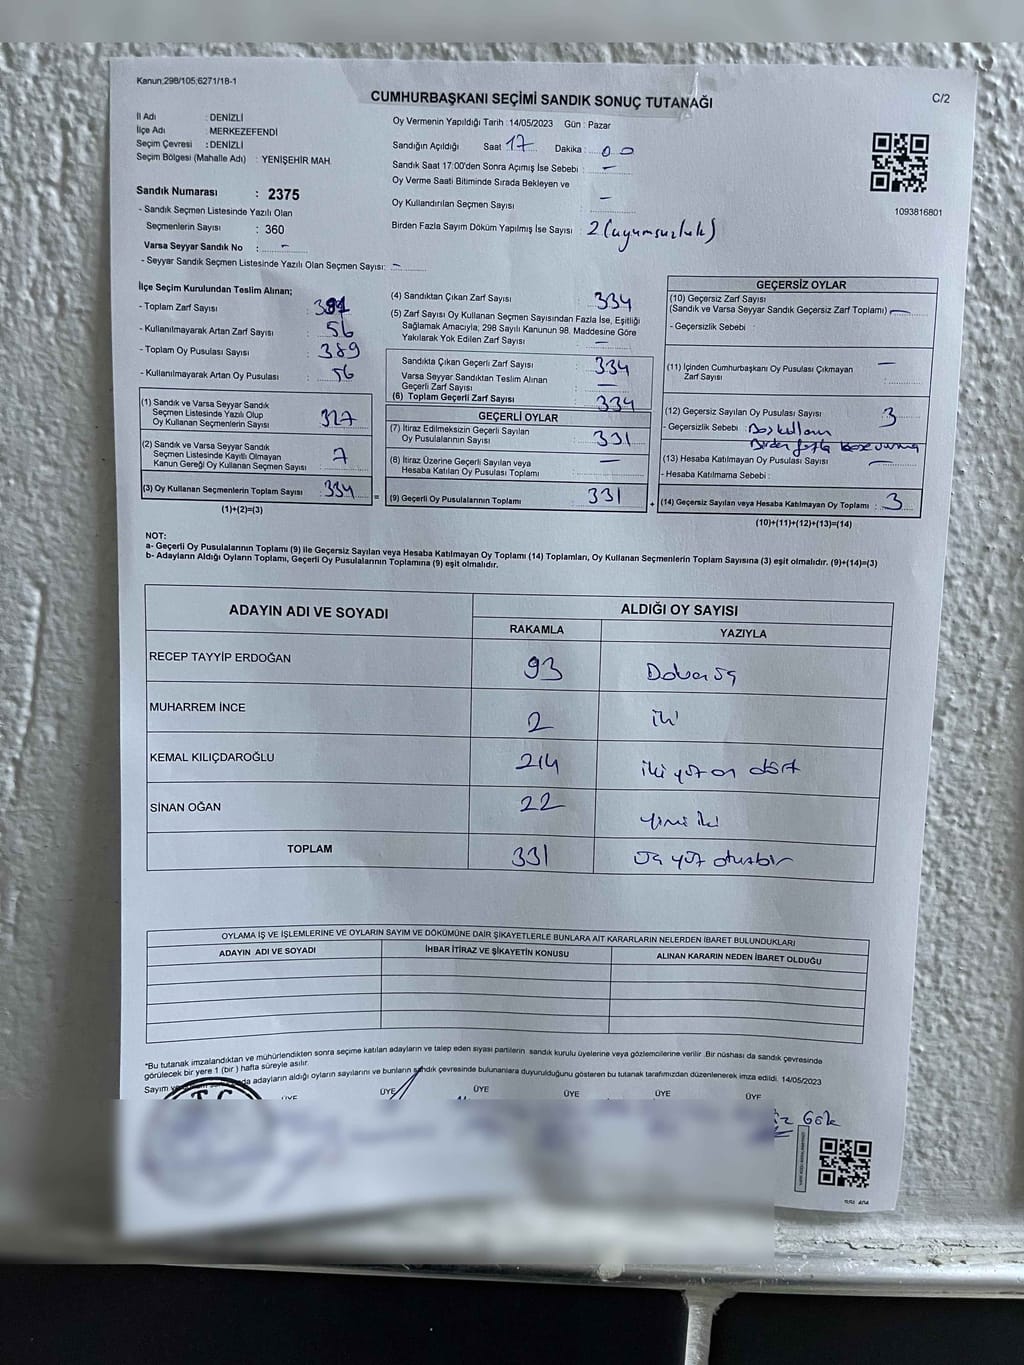 Kanun.298/105;6271/18-1
CUMHURBAŞKANI SEÇİMİ SANDIK SONUÇ TUTANAĞI
C/2
İl Adı : DENİZLİ
İlçe Adı : MERKEZEFENDİ
Seçim Çevresi : DENİZLİ
Seçim Bölgesi (Mahalle Adı) : YENİŞEHİR MAH.
Sandık Numarası : 2375
- Sandık Seçmen Listesinde Yazılı Olan
Seçmenlerin Sayısı : 360
Varsa Seyyar Sandık No : -
- Seyyar Sandık Seçmen Listesinde Yazılı Olan Seçmen Sayısı: -
Oy Vermenin Yapıldığı Tarih : 14/05/2023 Gün : Pazar
Sandığın Açıldığı Saat 17 Dakika : 00
Sandık Saat 17:00'den Sonra Açımış İse Sebebi : -
Oy Verme Saati Bitiminde Sırada Bekleyen ve
Oy Kullandırılan Seçmen Sayısı : -
Birden Fazla Sayım Döküm Yapılmış İse Sayısı : 2 (uyumsuzluk)
1093816801
İlçe Seçim Kurulundan Teslim Alınan;
- Toplam Zarf Sayısı :
- Kullanılmayarak Artan Zarf Sayısı : 56
- Toplam Oy Pusulası Sayısı : 389
- Kullanılmayarak Artan Oy Pusulası : 56
(1) Sandık ve Varsa Seyyar Sandık
Seçmen Listesinde Yazılı Olup
Oy Kullanan Seçmenlerin Sayısı : 327
(2) Sandık ve Varsa Seyyar Sandık
Seçmen Listesinde Kayıtlı Olmayan
Kanun Gereği Oy Kullanan Seçmen Sayısı : 7
(3) Oy Kullanan Seçmenlerin Toplam Sayısı : 334
(1)+(2)=(3)
(4) Sandıktan Çıkan Zarf Sayısı : 334
(5) Zarf Sayısı Oy Kullanan Seçmen Sayısından Fazla İse, Eşitliği
Sağlamak Amacıyla, 298 Sayılı Kanunun 98. Maddesine Göre
Yakılarak Yok Edilen Zarf Sayısı : -
Sandıkta Çıkan Geçerli Zarf Sayısı : 334
Varsa Seyyar Sandıktan Teslim Alınan
Geçerli Zarf Sayısı : -
(6) Toplam Geçerli Zarf Sayısı : 334
GEÇERLİ OYLAR
(7) İtiraz Edilmeksizin Geçerli Sayılan
Oy Pusulalarının Sayısı : 331
(8) İtiraz Üzerine Geçerli Sayılan veya
Hesaba Katılan Oy Pusulası Toplamı : -
(9) Geçerli Oy Pusulalarının Toplamı : 331
GEÇERSİZ OYLAR
(10) Geçersiz Zarf Sayısı
(Sandık ve Varsa Seyyar Sandık Geçersiz Zarf Toplamı) : -
- Geçersizlik Sebebi :
(11) İçinden Cumhurbaşkanı Oy Pusulası Çıkmayan
Zarf Sayısı : -
(12) Geçersiz Sayılan Oy Pusulası Sayısı : 3
- Geçersizlik Sebebi :
Birden fazla
(13) Hesaba Katılmayan Oy Pusulası Sayısı : -
- Hesaba Katılmama Sebebi :
(14) Geçersiz Sayılan veya Hesaba Katılmayan Oy Toplamı : 3
(10)+(11)+(12)+(13)=(14)
NOT:
a- Geçerli Oy Pusulalarının Toplamı (9) ile Geçersiz Sayılan veya Hesaba Katılmayan Oy Toplamı (14) Toplamları, Oy Kullanan Seçmenlerin Toplam Sayısına (3) eşit olmalıdır. (9)+(14)=(3)
b- Adayların Aldığı Oyların Toplamı, Geçerli Oy Pusulalarının Toplamına (9) eşit olmalıdır.
ADAYIN ADI VE SOYADI ALDIĞI OY SAYISI
RAKAMLA YAZIYLA
RECEP TAYYİP ERDOĞAN 93 Doksan üç
MUHARREM İNCE 2 iki
KEMAL KILIÇDAROĞLU 214 iki yüz on dört
SİNAN OĞAN 22 yirmi iki
TOPLAM 331 üç yüz otuzbir
OYLAMA İŞ VE İŞLEMLERİNE VE OYLARIN SAYIM VE DÖKÜMÜNE DAİR ŞİKAYETLERLE BUNLARA AİT KARARLARIN NELERDEN İBARET BULUNDUKLARI
ADAYIN ADI VE SOYADI İHBAR İTİRAZ VE ŞİKAYETİN KONUSU ALINAN KARARIN NEDEN İBARET OLDUĞU
*Bu tutanak imzalandıktan ve mühürlendikten sonra seçime katılan adayların ve talep eden siyasi partilerin sandık kurulu üyelerine veya gözlemcilerine verilir .Bir nüshası da sandık çevresinde
görülecek bir yere 1 (bir ) hafta süreyle asılır.
Sayım ve adayların aldığı oyların sayılarını ve bunların sandık çevresinde bulunanlara duyurulduğunu gösteren bu tutanak tarafımızdan düzenlenerek imza edildi. 14/05/2023
T.C.
ÜYE ÜYE ÜYE ÜYE ÜYE ÜYE
Gök